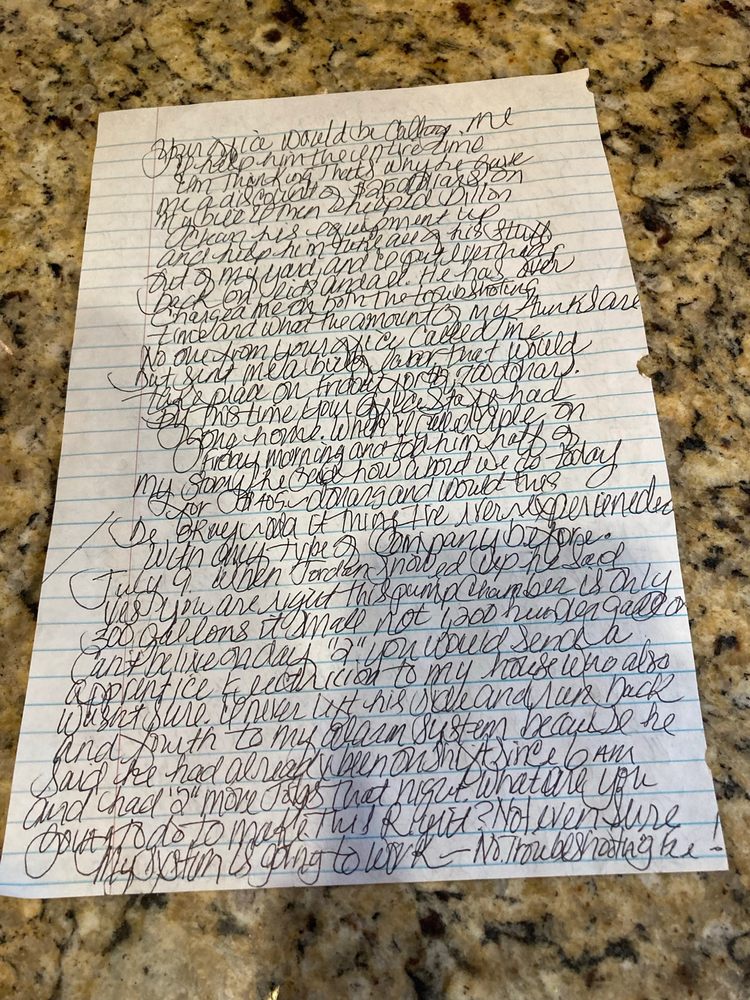 Your office would be calling me
to help him the entire time
I'm thinking thats why he gave
me a discount of $200 dollars on
My bill then I helped Dillon
clean his equipment up
and help him take all of his stuff
out of my yard, and I put evergreens
back on lids and all. He has over
charged me on both the troubleshooting
time and what the amount of my tank are
No one from your office called me
but sent me a bill labor that would
take place on Friday for dollars.
By this time your office staff had
gone home. When I called on
Friday morning and told him half of
my story he said how about we do today
for dollars and would this
be Okay wada it thing I've never experienced
with any type of Company before.
July 9 when Jordan showed up he said
yes you are right this pump chamber is only
300 gallons it small not 1,200 hundred gallon
Can't belive on day "2" you would send a
apprentice Electricion to my house who also
wasn't sure. I never left his side and run back
and fourth to my alarm system because he
said he had already been on shift since 6 AM
and had "2" more Jobs that night. what are you
going to do to make this Right? Not even sure
My system is going to work — No. Troubleshooting he!